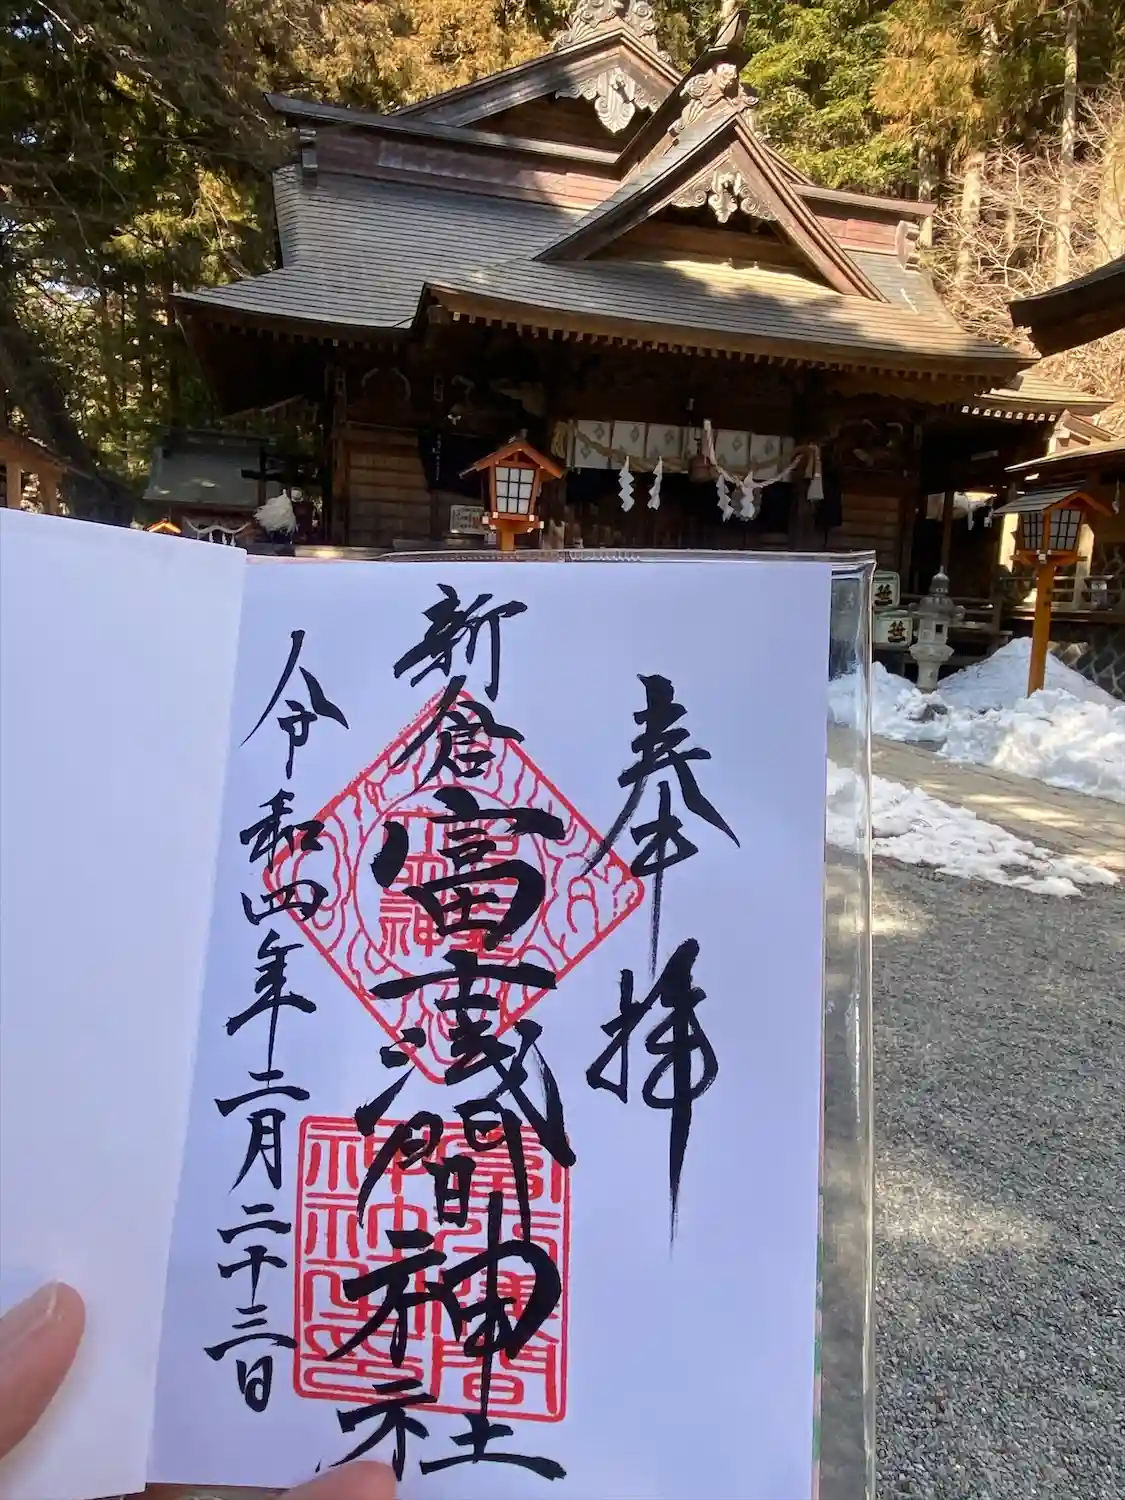 奉拝
新倉富士浅間神社
令和四年二月二十三日